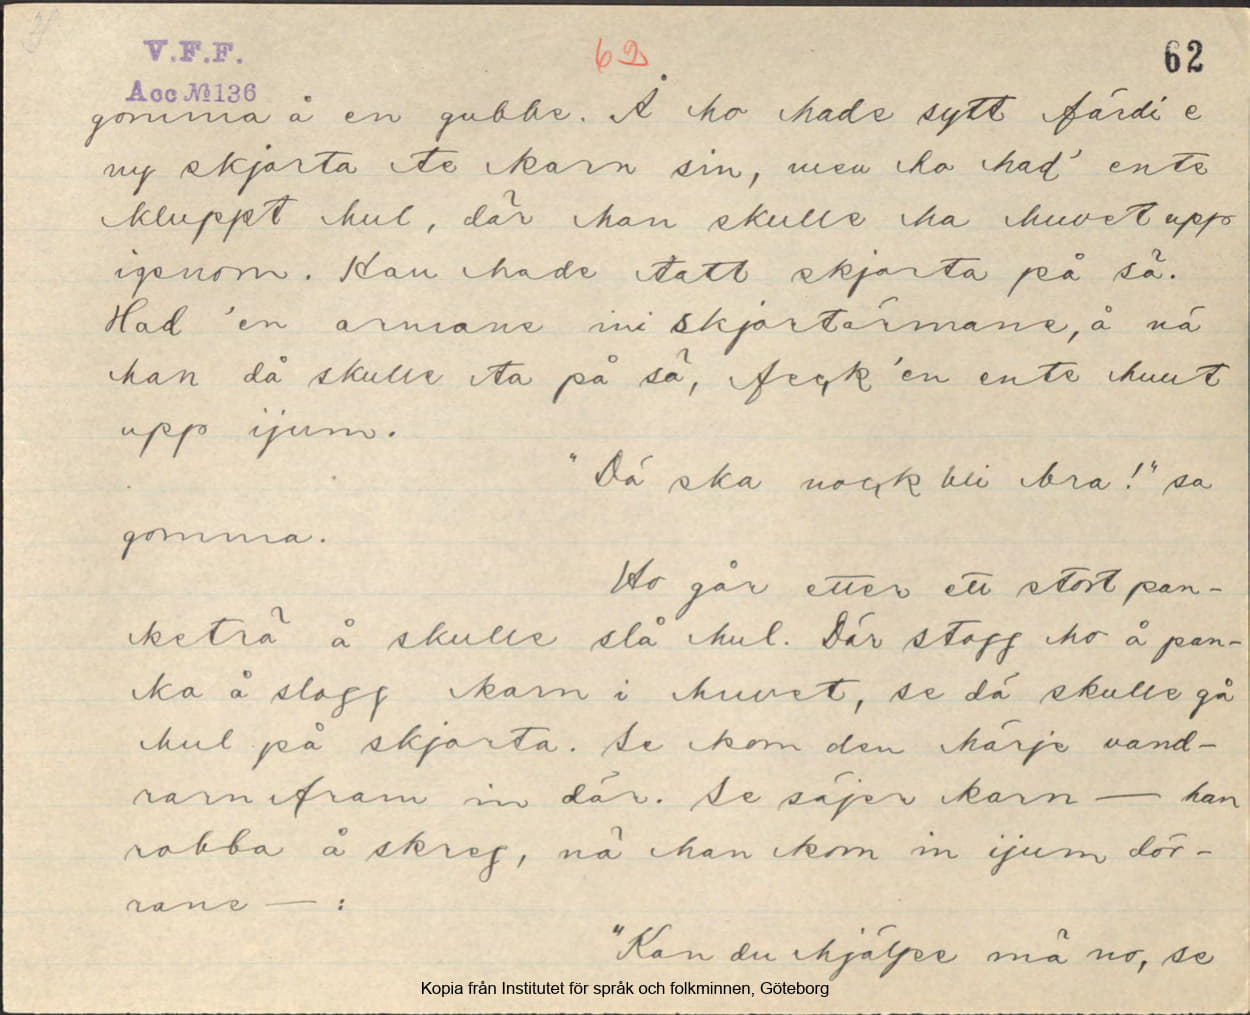 V.F.F.
Acc № 136
62
62
gomma å en gubbe. Å ho hade sytt färdi e
ny skjorta te karn sin, men ho had' ente
kluppt hul, där han skulle ha huvet upp
igenom. Han hade tatt skjorta på sä.
Had 'en armane ini skjortärmane, å nä
han då skulle ta på sä, feck 'en ente huut
upp ijum.
"Dä ska nock bli bra!" sa
gomma.
Ho går etter ett stort pan-
keträ å skulle slå hul. Där stogg ho å pan-
ka å slogg karn i huvet, se dä skulle gå
hul på skjorta. Se kom den härje vand-
rarn fram in där. Se säjer karn — han
robba å skreg, nä han kom in ijum dör-
rane — :
"Kan du hjälpe mä no, se
Kopia från Institutet för språk och folkminnen, Göteborg